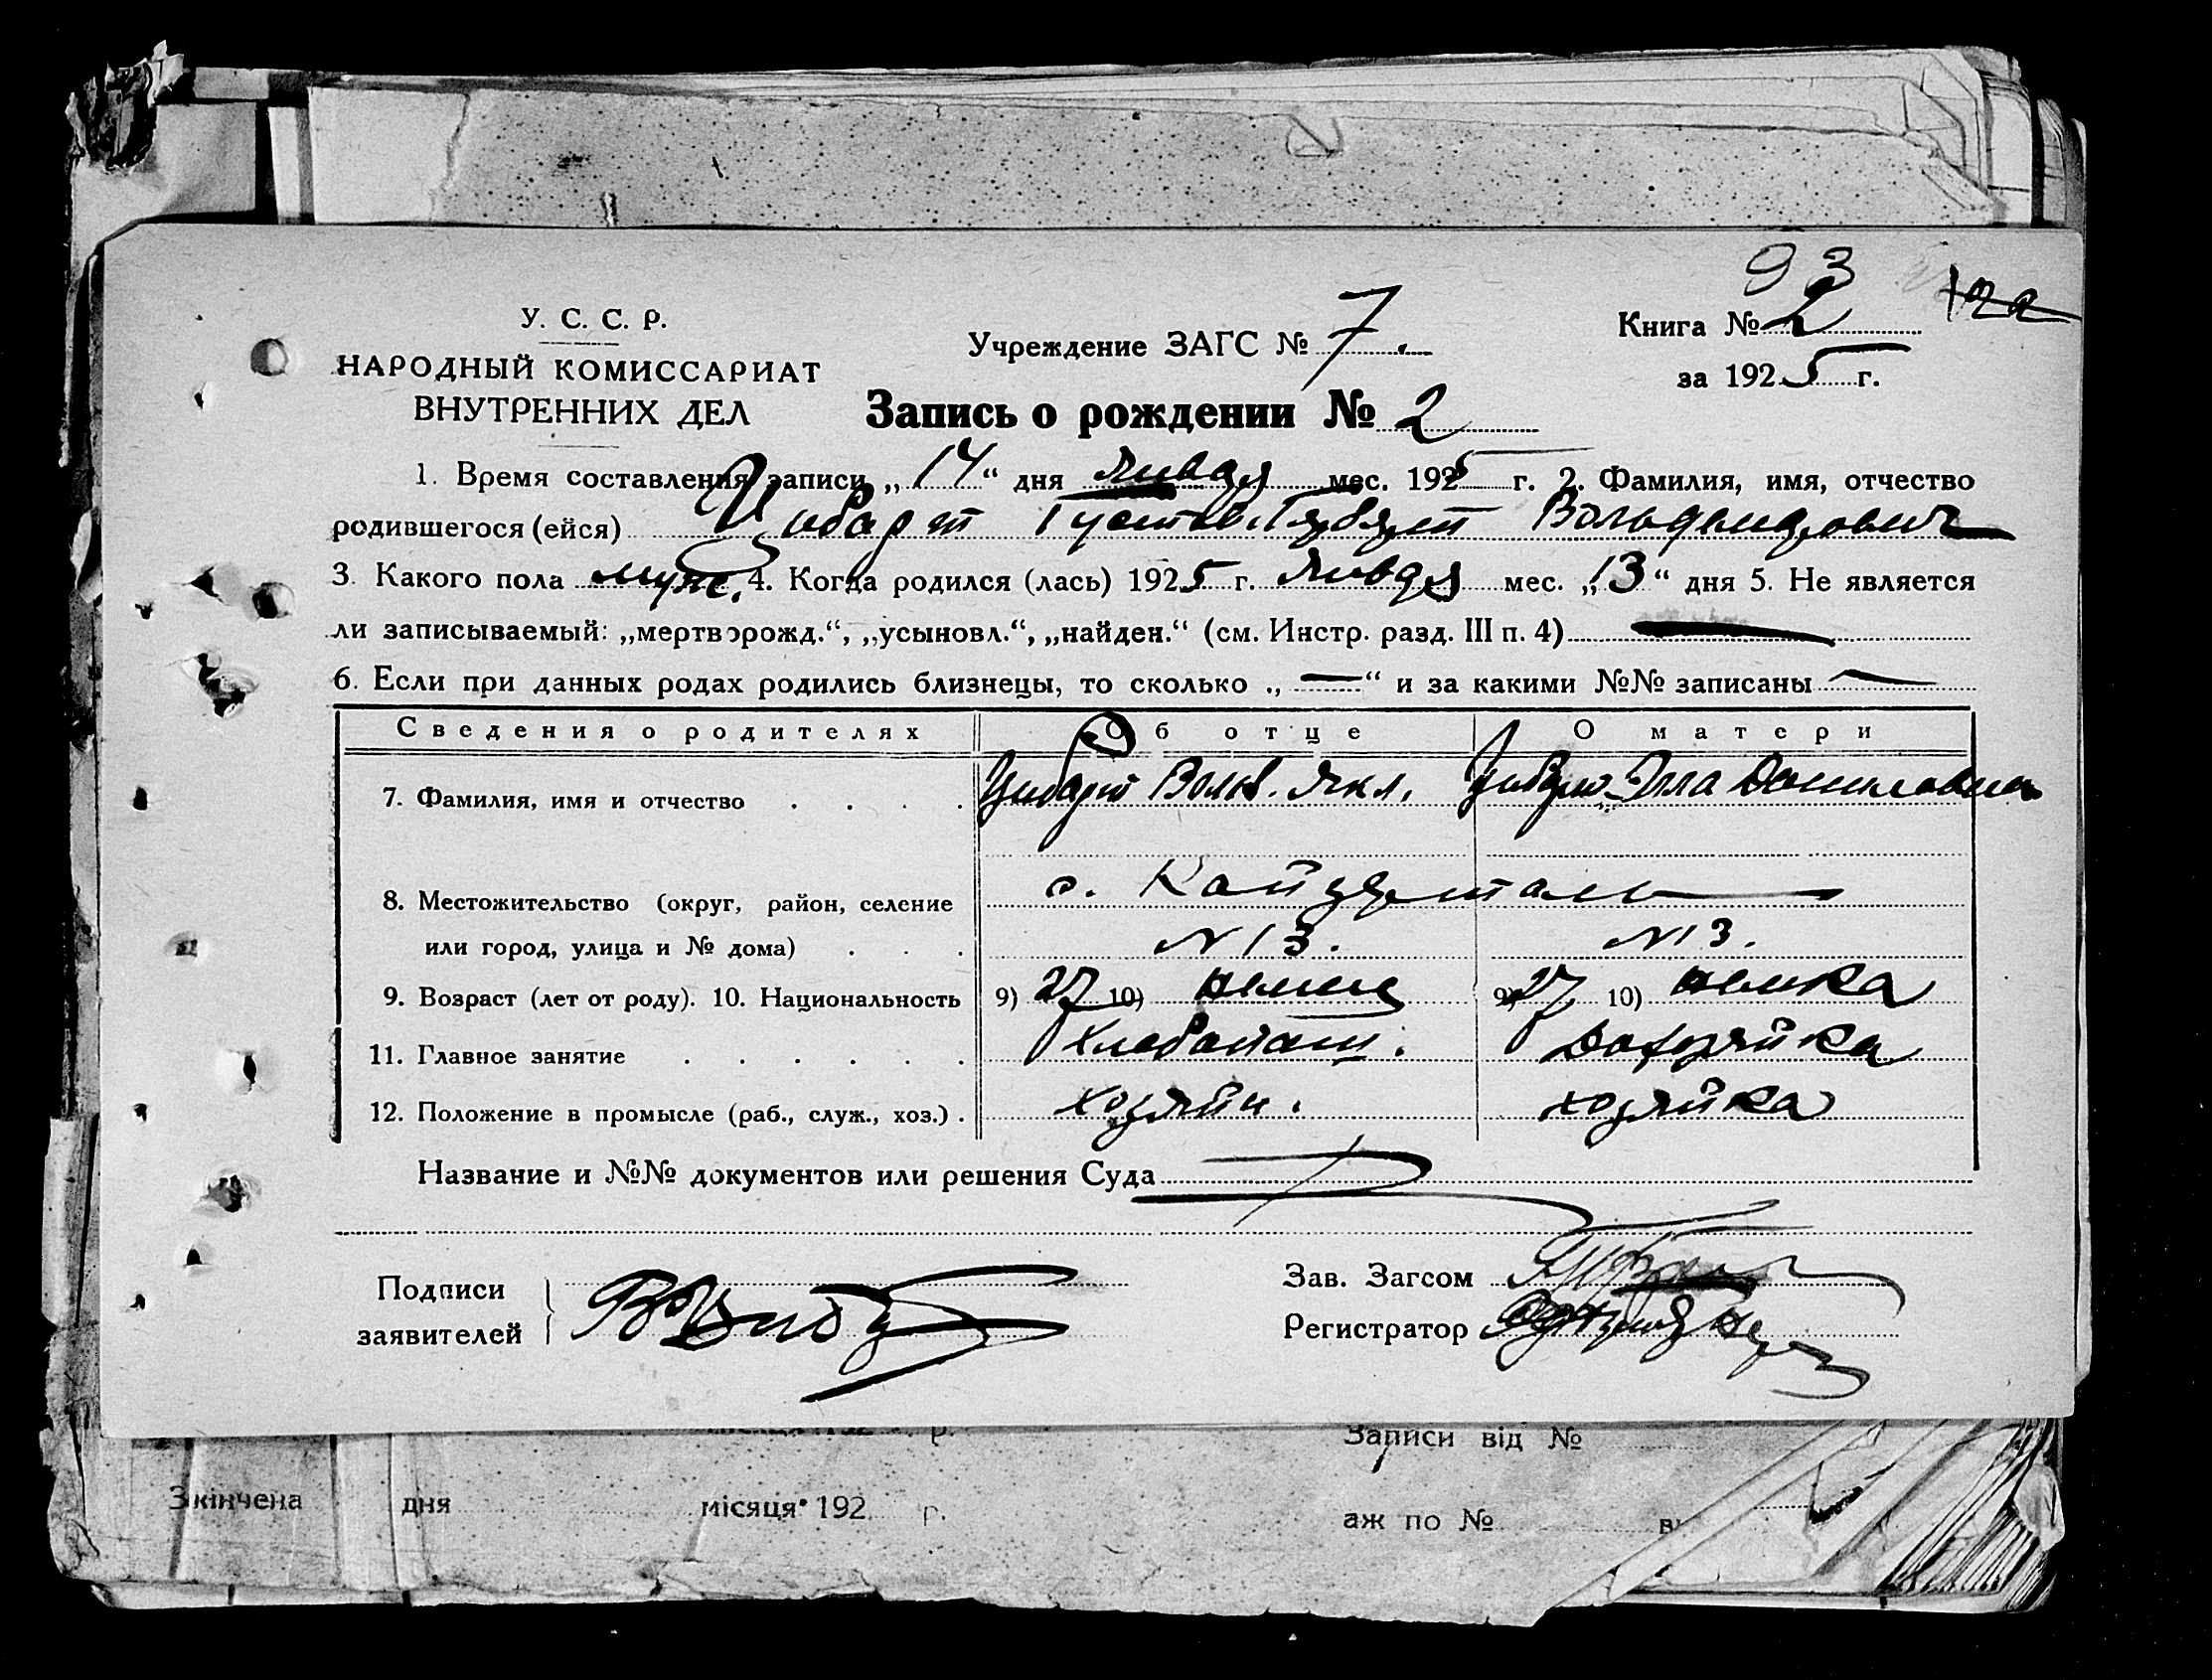 93
122
У. С. С. Р.
НАРОДНЫЙ КОМИССАРИАТ
ВНУТРЕННИХ ДЕЛ
Учреждение ЗАГС № 7.
Книга № 2
за 1925 г.
Запись о рождении № 2
1. Время составления записи „14“ дня января мес. 1925 г. 2. Фамилия, имя, отчество
родившегося (ейся) Цибарт Густав
3. Какого пола муж. 4. Когда родился (лась) 1925 г. января мес. „13“ дня 5. Не является
ли записываемый: „мертворожд.“, „усыновл.“, „найден.“ (см. Инстр. разд. III п. 4)
6. Если при данных родах родились близнецы, то сколько „—“ и за какими №№ записаны —
Сведения о родителях Об отце О матери
7. Фамилия, имя и отчество . . . . Цибарт Элла Даниловна
8. Местожительство (округ, район, селение
с.
или город, улица и № дома) . . . N 13. N 13.
9. Возраст (лет от роду). 10. Национальность 9) 27 10) немец 9) 27 10) немка
11. Главное занятие . . . . . Хлебопаш. Домозяйка
12. Положение в промысле (раб., служ., хоз.) . хозяин. хозяйка
Название и №№ документов или решения Суда
Подписи
заявителей
Зав. Загсом
Регистратор
Записи від №
Зкінчена дня місяця 192 р.
аж по №